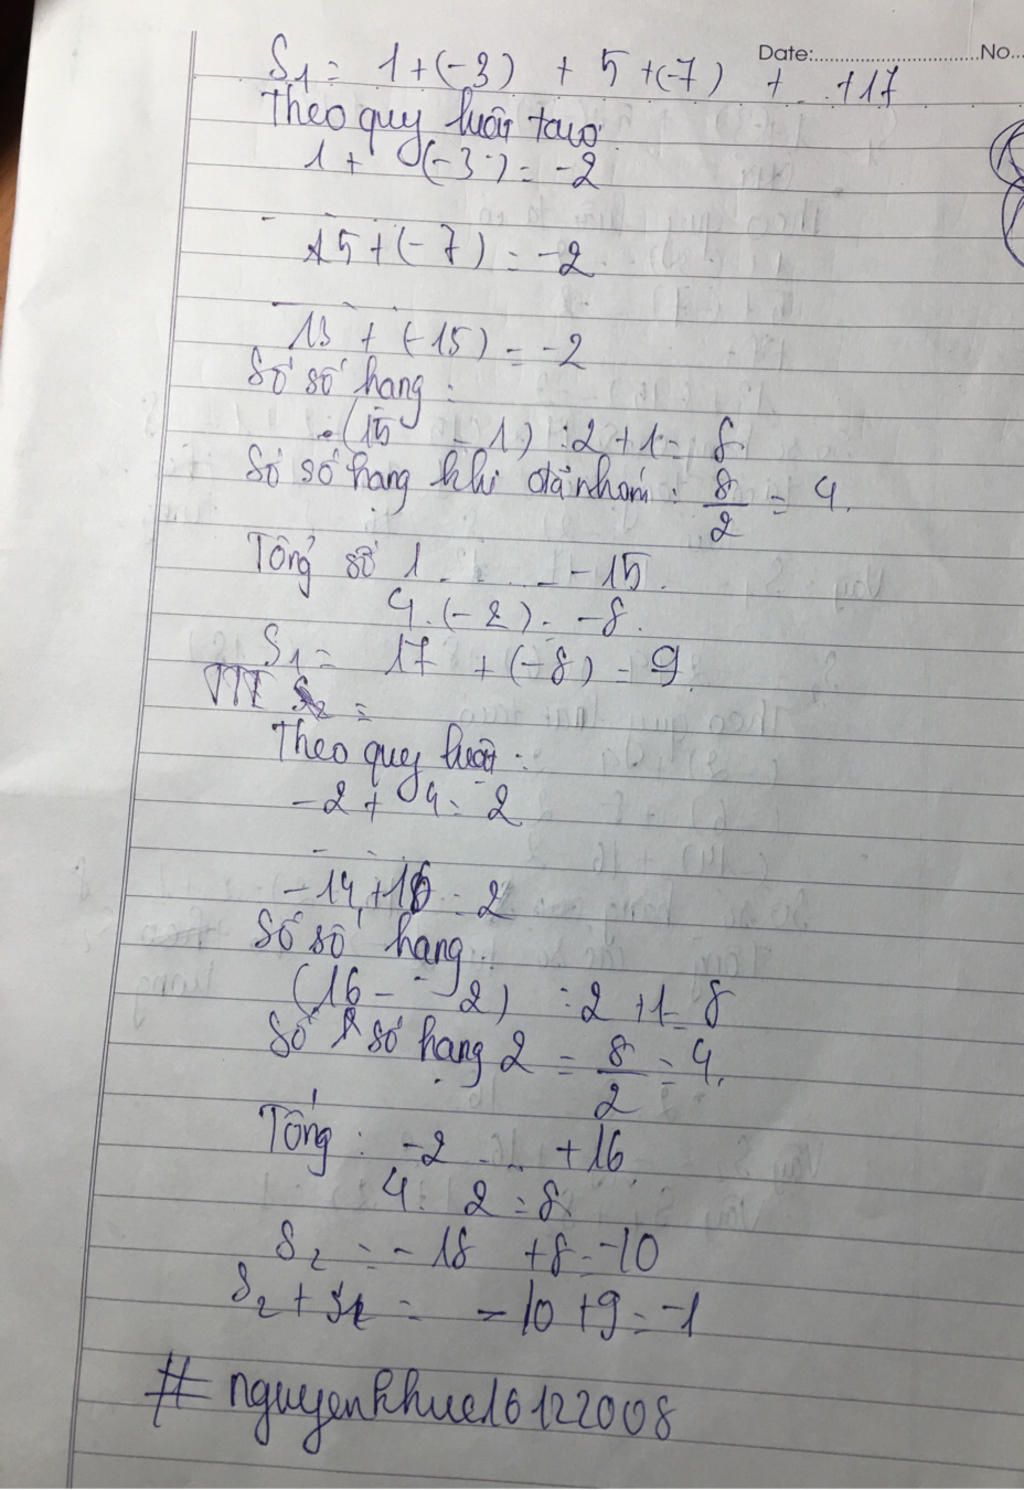 Date: No...
S1 = 1 + (-3) + 5 + (-7) + ... + 17
Theo quy luật ta có
1 + (-3) = -2
5 + (-7) = -2
13 + (-15) = -2
Số số hạng :
(15 - 1) : 2 + 1 = 8
Số số hạng khi đã nhóm : 8/2 = 4.
Tổng số 1 ... - 15.
4.(-2) = -8.
S1 = 17 + (-8) = 9.
TTT S2 =
Theo quy luật :
-2 + 4 = 2
-14 + 16 = 2
Số số hạng
(16 - 2) : 2 + 1 = 8
Số số hạng 2 = 8/2 = 4.
Tổng : -2 ... + 16
4. 2 = 8.
S2 = -18 + 8 = -10
S2 + S1 = -10 + 9 = -1
# nguyenkhue16122008